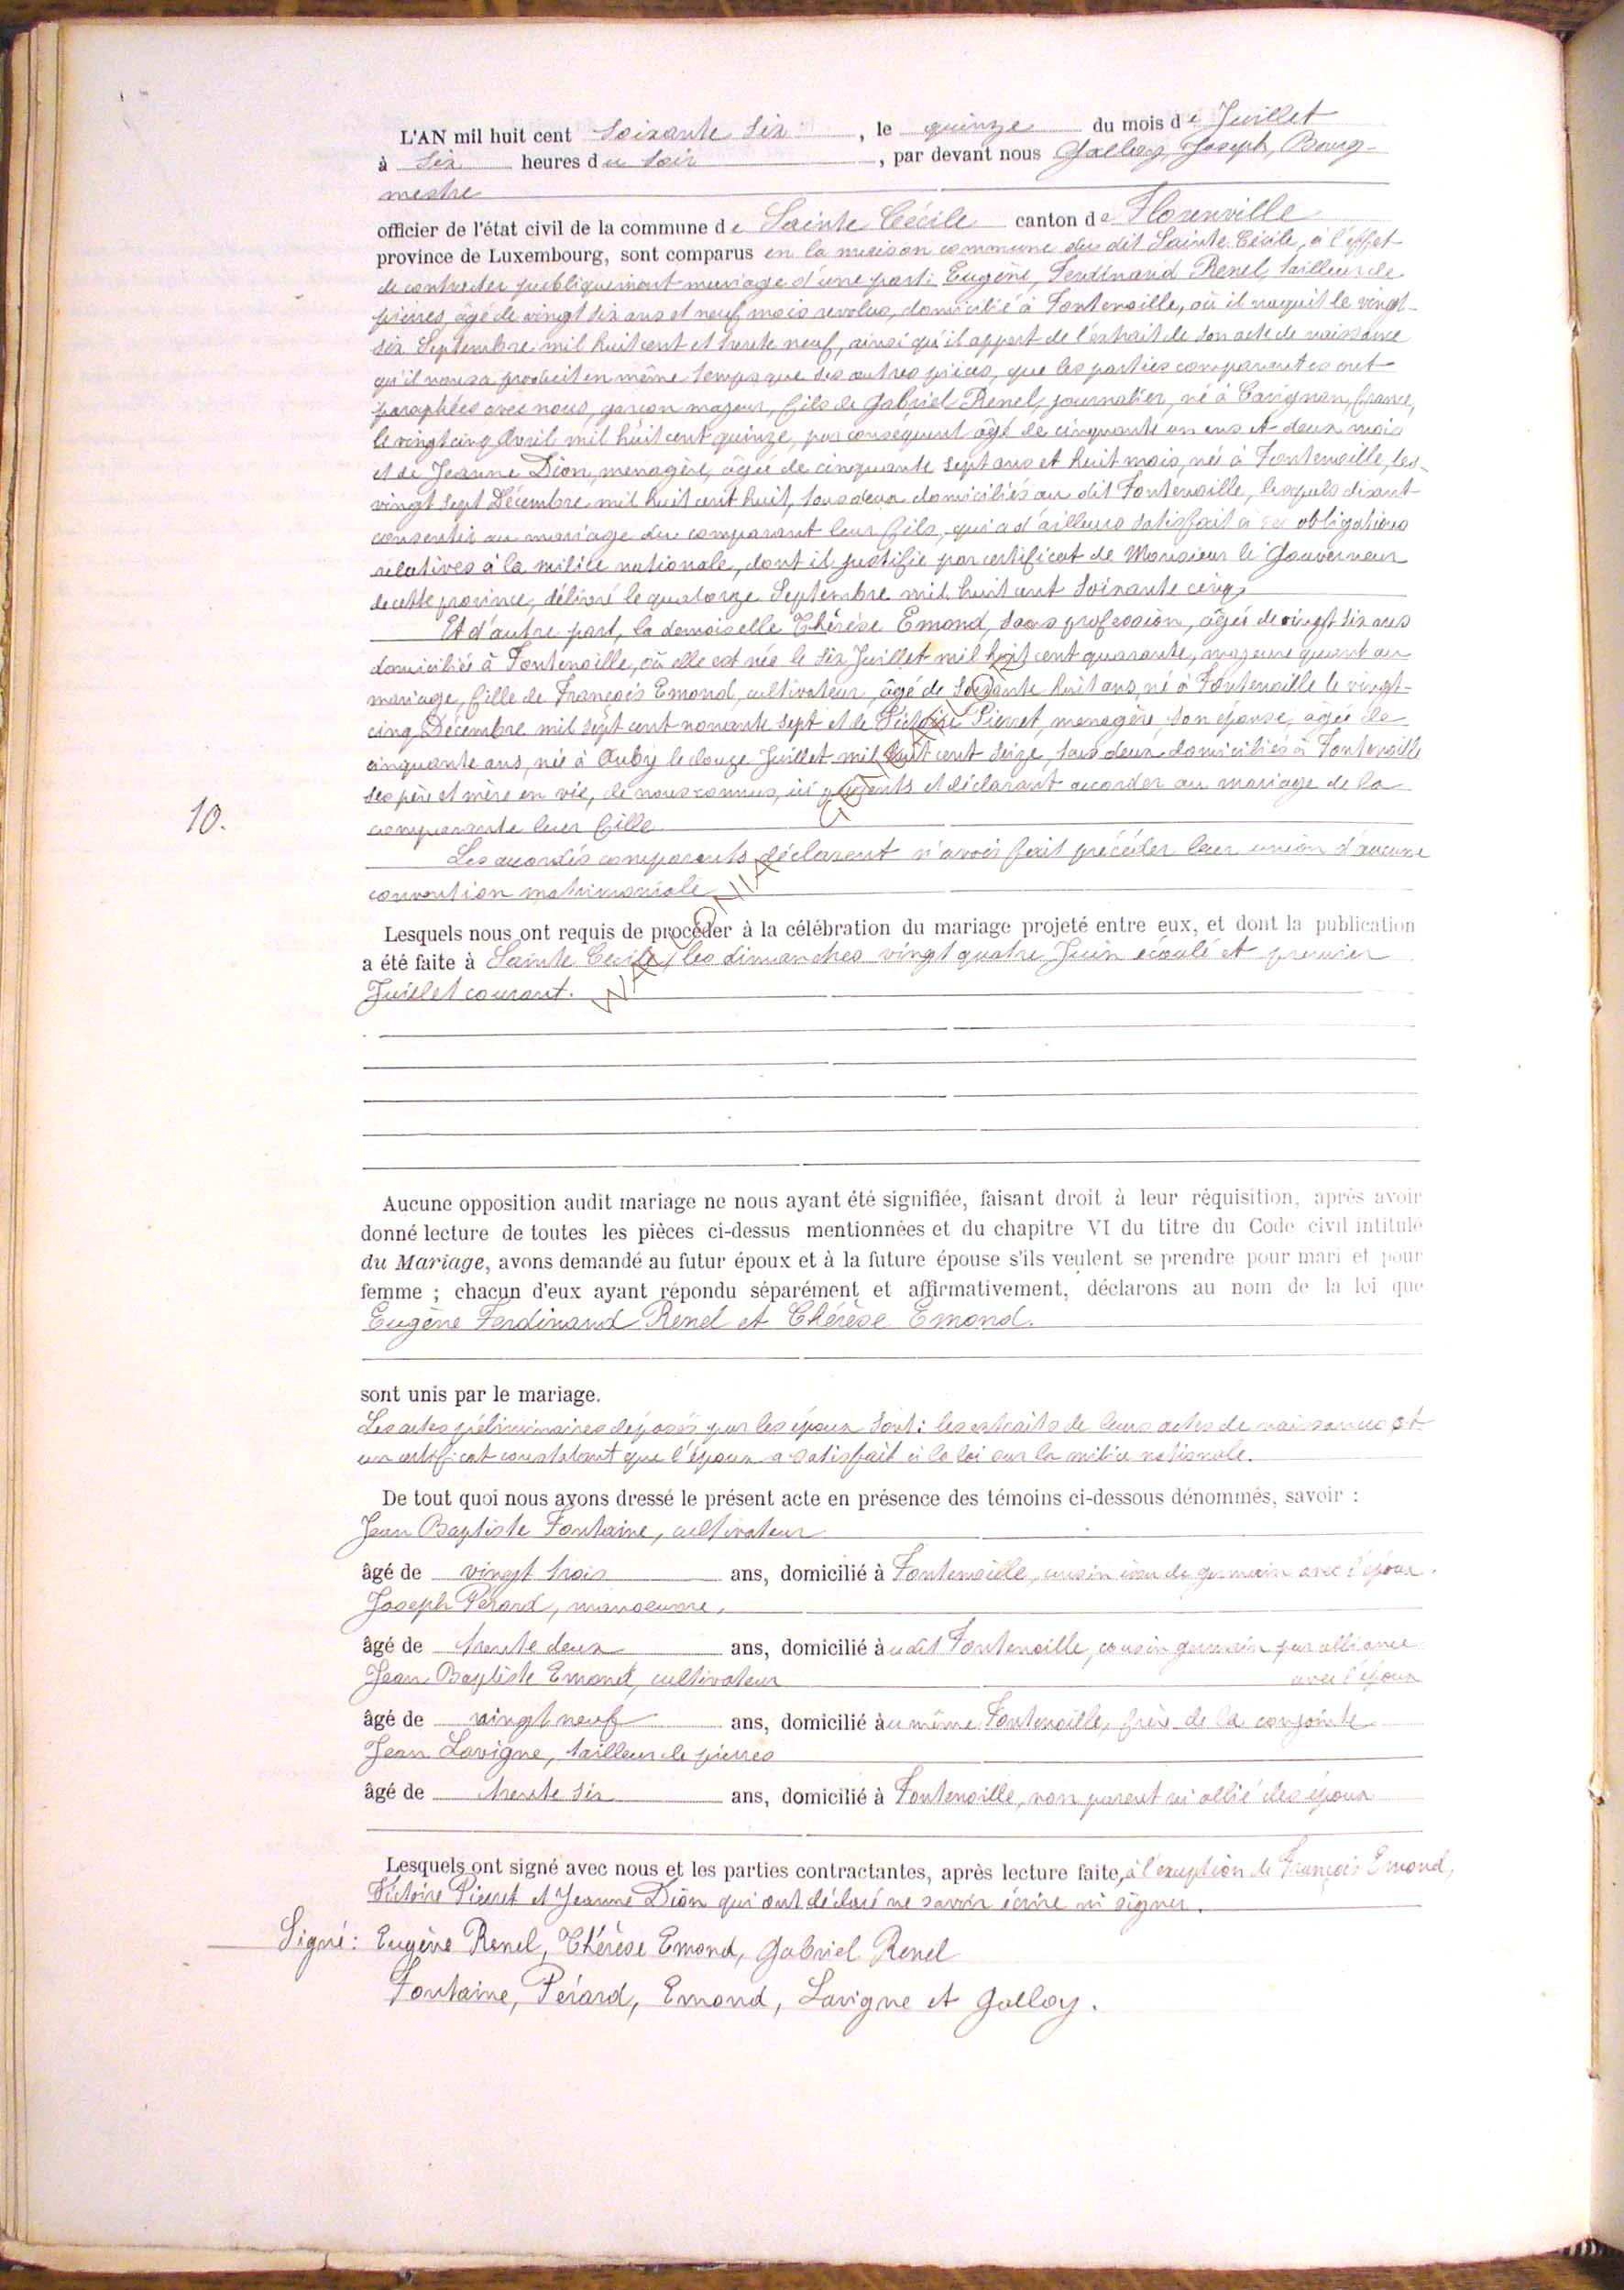 L'AN mil huit cent soixante six, le quinze du mois de Juillet
à six heures du soir, par devant nous Galloy, Joseph, Bourg-
mestre
officier de l'état civil de la commune de Sainte Cécile canton de Florenville
province de Luxembourg, sont comparus en la maison commune du dit Sainte Cécile, à l'effet
de contracter publiquement mariage d'une part: Eugène, Ferdinand Renel, tailleur de
pierres, âgé de vingt six ans et neuf mois revolus, domicilié à Fontenoille, où il naquit le vingt-
six Septembre mil huit cent et trente neuf, ainsi qu'il appert de l'extrait de son acte de naissance
qu'il nous a produit en même temps que des autres pièces, que les parties comparantes ont
paraphées avec nous, garçon majeur, fils de Gabriel Renel, journalier, né à Carignan, france,
le vingt cinq Avril mil huit cent quinze, par conséquent âgé de cinquante un ans et deux mois
et de Jeanne Dion, menagère, âgée de cinquante sept ans et huit mois, née à Fontenoille, les
vingt sept Décembre mil huit cent huit, tous deux domiciliés au dit Fontenoille, lesquels disant
consentir au mariage du comparant leur fils, qui a d'ailleurs satisfait à ses obligations
relatives à la milice nationale, dont il justifie par certificat de Monsieur le Gouverneur
de cette province, délivré le quatorze Septembre mil huit cent soixante cinq
Et d'autre part, la demoiselle Thérèse Emond, sans profession, âgée de vingt six ans
domiciliée à Fontenoille, où elle est née le six Juillet mil huit cent quarante, majeure quant au
mariage, fille de François Emond, cultivateur, âgé de soixante huit ans, né à Fontenoille le vingt-
cinq Décembre mil sept cent nonante sept et de Victoire Pierret, menagère, son épouse, âgée de
cinquante ans, née à Auby le douze Juillet mil huit cent seize, tous deux domiciliés à Fontenoille
ses père et mère en vie, de nous connus, ici présents et déclarant accorder au mariage de la
comparante leur fille
10.
Les accordés comparants déclarent n'avoir fait précéder leur union d'aucune
convention matrimoniale
WALLONIA GENEALOGIE
Lesquels nous ont requis de procéder à la célébration du mariage projeté entre eux, et dont la publication
a été faite à Sainte Cécile, les dimanches vingt quatre Juin écoulé et premier
Juillet courant.
Aucune opposition audit mariage ne nous ayant été signifiée, faisant droit à leur réquisition, après avoir
donné lecture de toutes les pièces ci-dessus mentionnées et du chapitre VI du titre du Code civil intitulé
du Mariage, avons demandé au futur époux et à la future épouse s'ils veulent se prendre pour mari et pour
femme ; chacun d'eux ayant répondu séparément et affirmativement, déclarons au nom de la loi que
Eugène Ferdinand Renel et Thérèse Emond.
sont unis par le mariage.
Les actes préliminaires déposés par les époux sont: les extraits de leurs actes de naissances et
un certificat constatant que l'époux a satisfait à la loi sur la milice nationale.
De tout quoi nous avons dressé le présent acte en présence des témoins ci-dessous dénommés, savoir :
Jean Baptiste Fontaine, cultivateur
âgé de vingt trois ans, domicilié à Fontenoille, cousin issu de germain avec l'époux.
Joseph Pérard, manoeuvre,
âgé de trente deux ans, domicilié àu dit Fontenoille, cousin germain par alliance
Jean Baptiste Emond, cultivateur avec l'époux
âgé de vingt neuf ans, domicilié àu même Fontenoille, frère de la conjointe
Jean Lavigne, tailleur de pierres
âgé de trente six ans, domicilié à Fontenoille, non parent ni allié des époux
Lesquels ont signé avec nous et les parties contractantes, après lecture faite, à l'exception de François Emond,
Victoire Pierret et Jeanne Dion qui ont déclaré ne savoir écrire ni signer.
Signé: Eugène Renel, Thérèse Emond, Gabriel Renel
Fontaine, Pérard, Emond, Lavigne et Galloy.